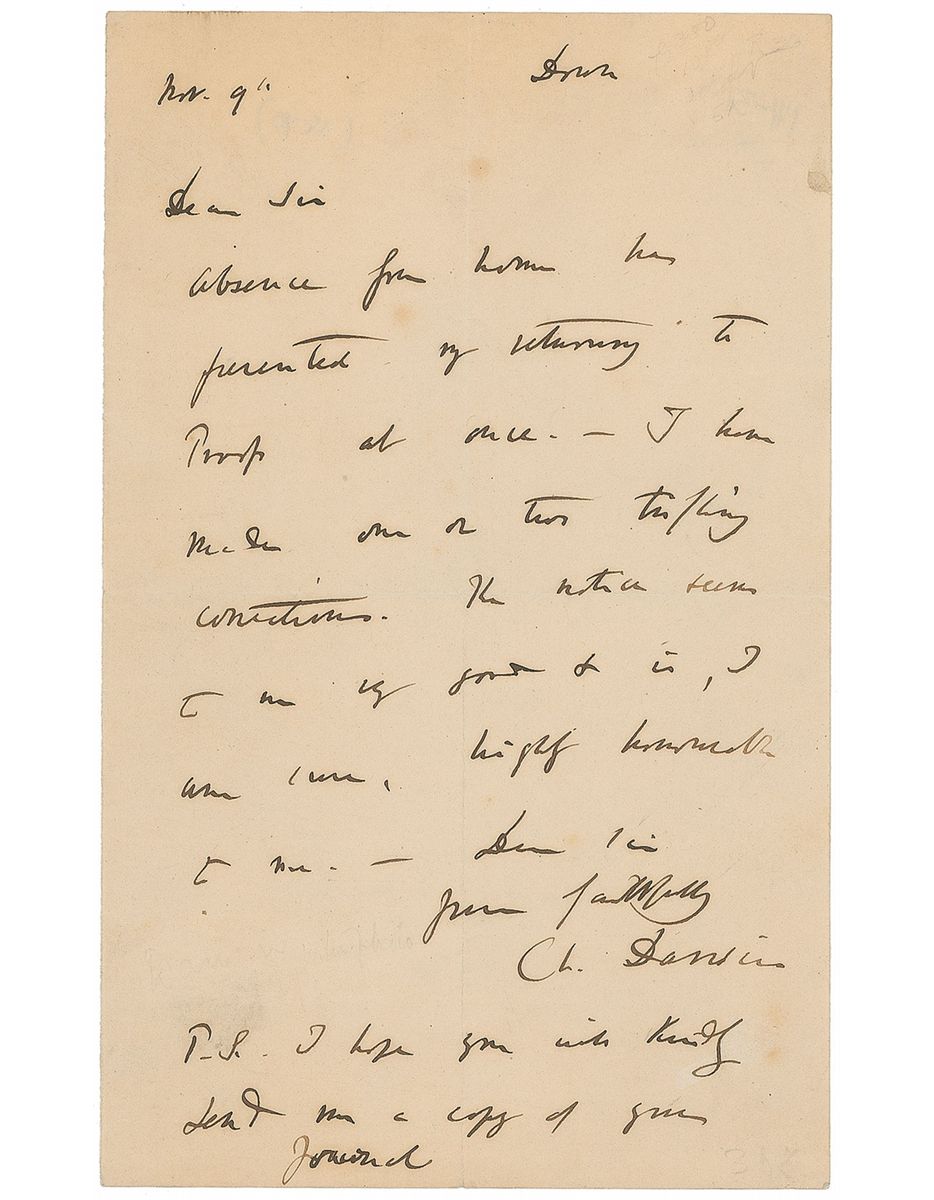 Nov. 9th Down
Dear Sir
Absence from home has
prevented my returning the
Proof at once. — I have
made one or two trifling
corrections. The notice seems
to me very good & is, I
am sure, highly honourable
to me. — Dear Sir
yours faithfully
Ch. Darwin
P.S. I hope you will kindly
send me a copy of your
Journal